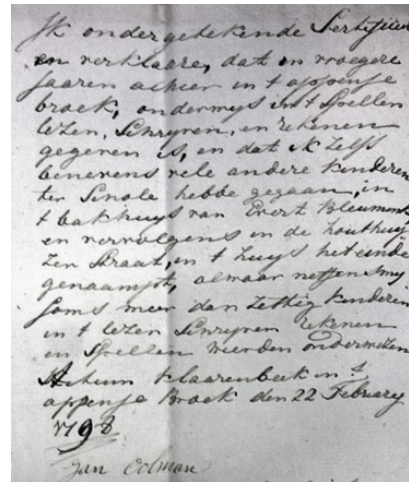 Ik ondergetekende Sertifisere
en verklaare, dat in vroegere
jaaren alhier in t appense
broek, onderwys in t Spellen
lezen, Schryven, en rekenen
gegeven is, en dat ik zelfs
benevens vele andere kinderen
ter Schole hebbe gegaan, in
t bakhuys van Evert Kleument
en vervolgens in de houthuy
zer Straat, in t huys het einde
genaampt, alwaar neffens my
Soms meer dan Zestig kinderen
in t lezen Schryven rekenen
en Spellen wierden onderwezen
Actum klaarenbeek in t
appense broek den 22 February
1798
Jan Tolman